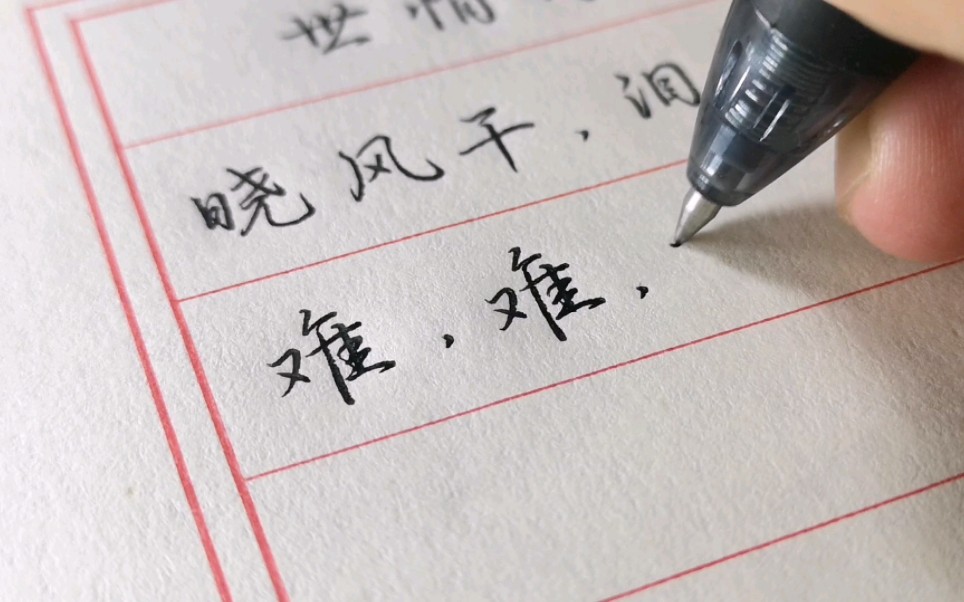 世情
晓风干，泪
难，难，